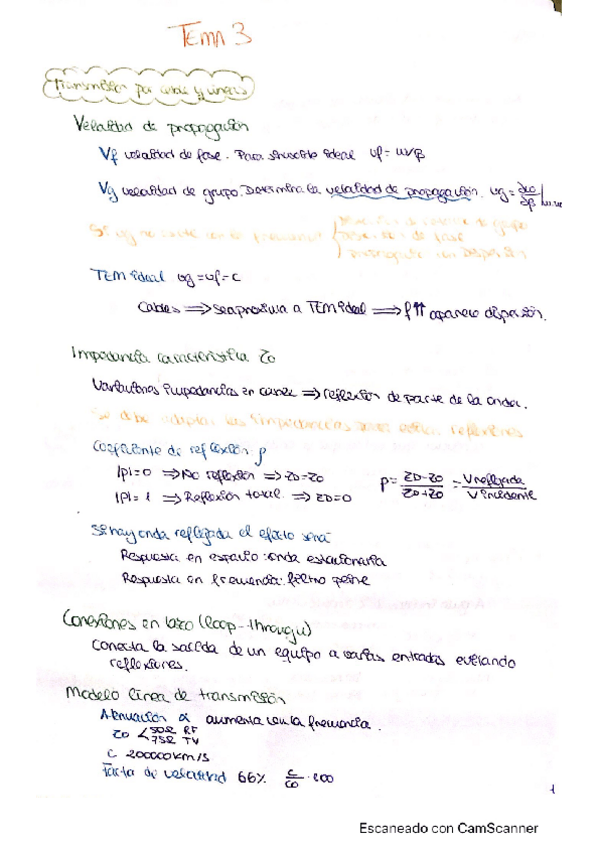 TEMA 3
Transmisión por cable y líneas
Velocidad de propagación
Vf velocidad de fase. Para sinusoide ideal vf = w/β
Vg velocidad de grupo. Determina la velocidad de propagación. vg = ∂w/∂β |w=wc
Si vg no cte con la frecuencia
de grupo
de fase
TEM ideal vg = vf = c
Cables ⟹ se aproxima a TEM ideal ⟹ f↑↑ aparece dispersión.
Impedancia característica Z0
Variaciones impedancias en canal ⟹ reflexión de parte de la onda.
Se debe adaptar las impedancias para evitar reflexiones
Coeficiente de reflexión ρ
|ρ| = 0 ⟹ No reflexión ⟹ ZD = Z0
ρ = ZD-Z0/ZD+Z0 = V reflejada/V incidente
|ρ| = 1 ⟹ Reflexión total ⟹ ZD = 0
Si hay onda reflejada el efecto será
Respuesta en espacio: onda estacionaria
Respuesta en frecuencia: filtro peine
Conexiones en lazo (loop-through)
Conecta la salida de un equipo a varias entradas evitando
reflexiones.
Modelo línea de transmisión
Atenuación α aumenta con la frecuencia.
Z0 < 50Ω RF
75Ω TV
C 200000 km/s
Factor de velocidad 66% c/c0 · 100
1
Escaneado con CamScanner